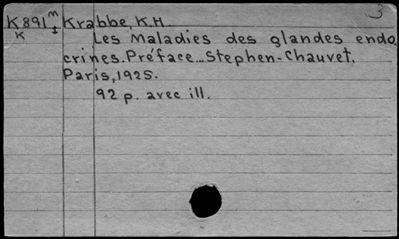 3
K891m Krabbe, K.H.
K 1 Les Maladies des glandes endo.
crines. Préface... Stephen-Chauvet.
Paris, 1925.
92 p. avec ill.